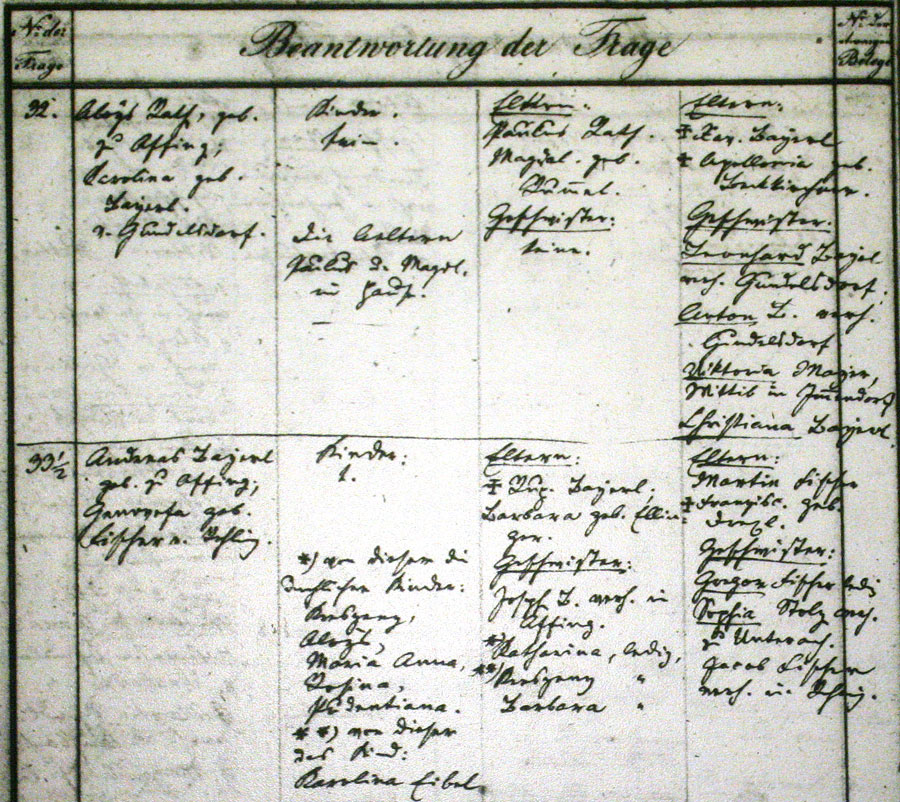 No. der
Frage
Beantwortung der Frage
No. der
Belege
32.
Aloys Rath, geb.
zu Affing;
Karolina geb.
Bayerl.
v. Gundelsdorf.
Kinder.
kein.
Die Aeltern
Paulus u. Magdl.
im Hause.
Eltern:
Paulus Rath.
Magdal. geb.
Geschwister:
keine.
Eltern:
‡ Xav. Bayerl
‡ Apollonia geb.
Geschwister:
Leonhard Bayerl
verh. Gundelsdorf;
Anton B. verh.
Gundelsdorf
Viktoria Mayer,
Wittib in
Christiana Bayerl.
33 1/2
Andreas Bayerl
geb. zu Affing;
Genovefa geb.
Fischer v. Rehling.
Kinder:
1.
*) von dieser die
Kinder:
Kreszenz,
Aloys,
Maria Anna,
Rosina,
Pudentiana.
**) von dieser
das Kind:
Karolina Eibel
Eltern:
‡ Rup. Bayerl,
Barbara geb. Ellin-
ger.
Geschwister:
Joseph B. verh. in
Affing.
*) Katharina, ledig,
**) Kreszenz "
Barbara "
Eltern:
Martin Fischer
‡ Franzisc. geb.
Drexl.
Geschwister:
Gregor Fischer ledig
Sophia Stolz verh.
zu Unterach.
Jacob Fischer
verh. in Rehling.